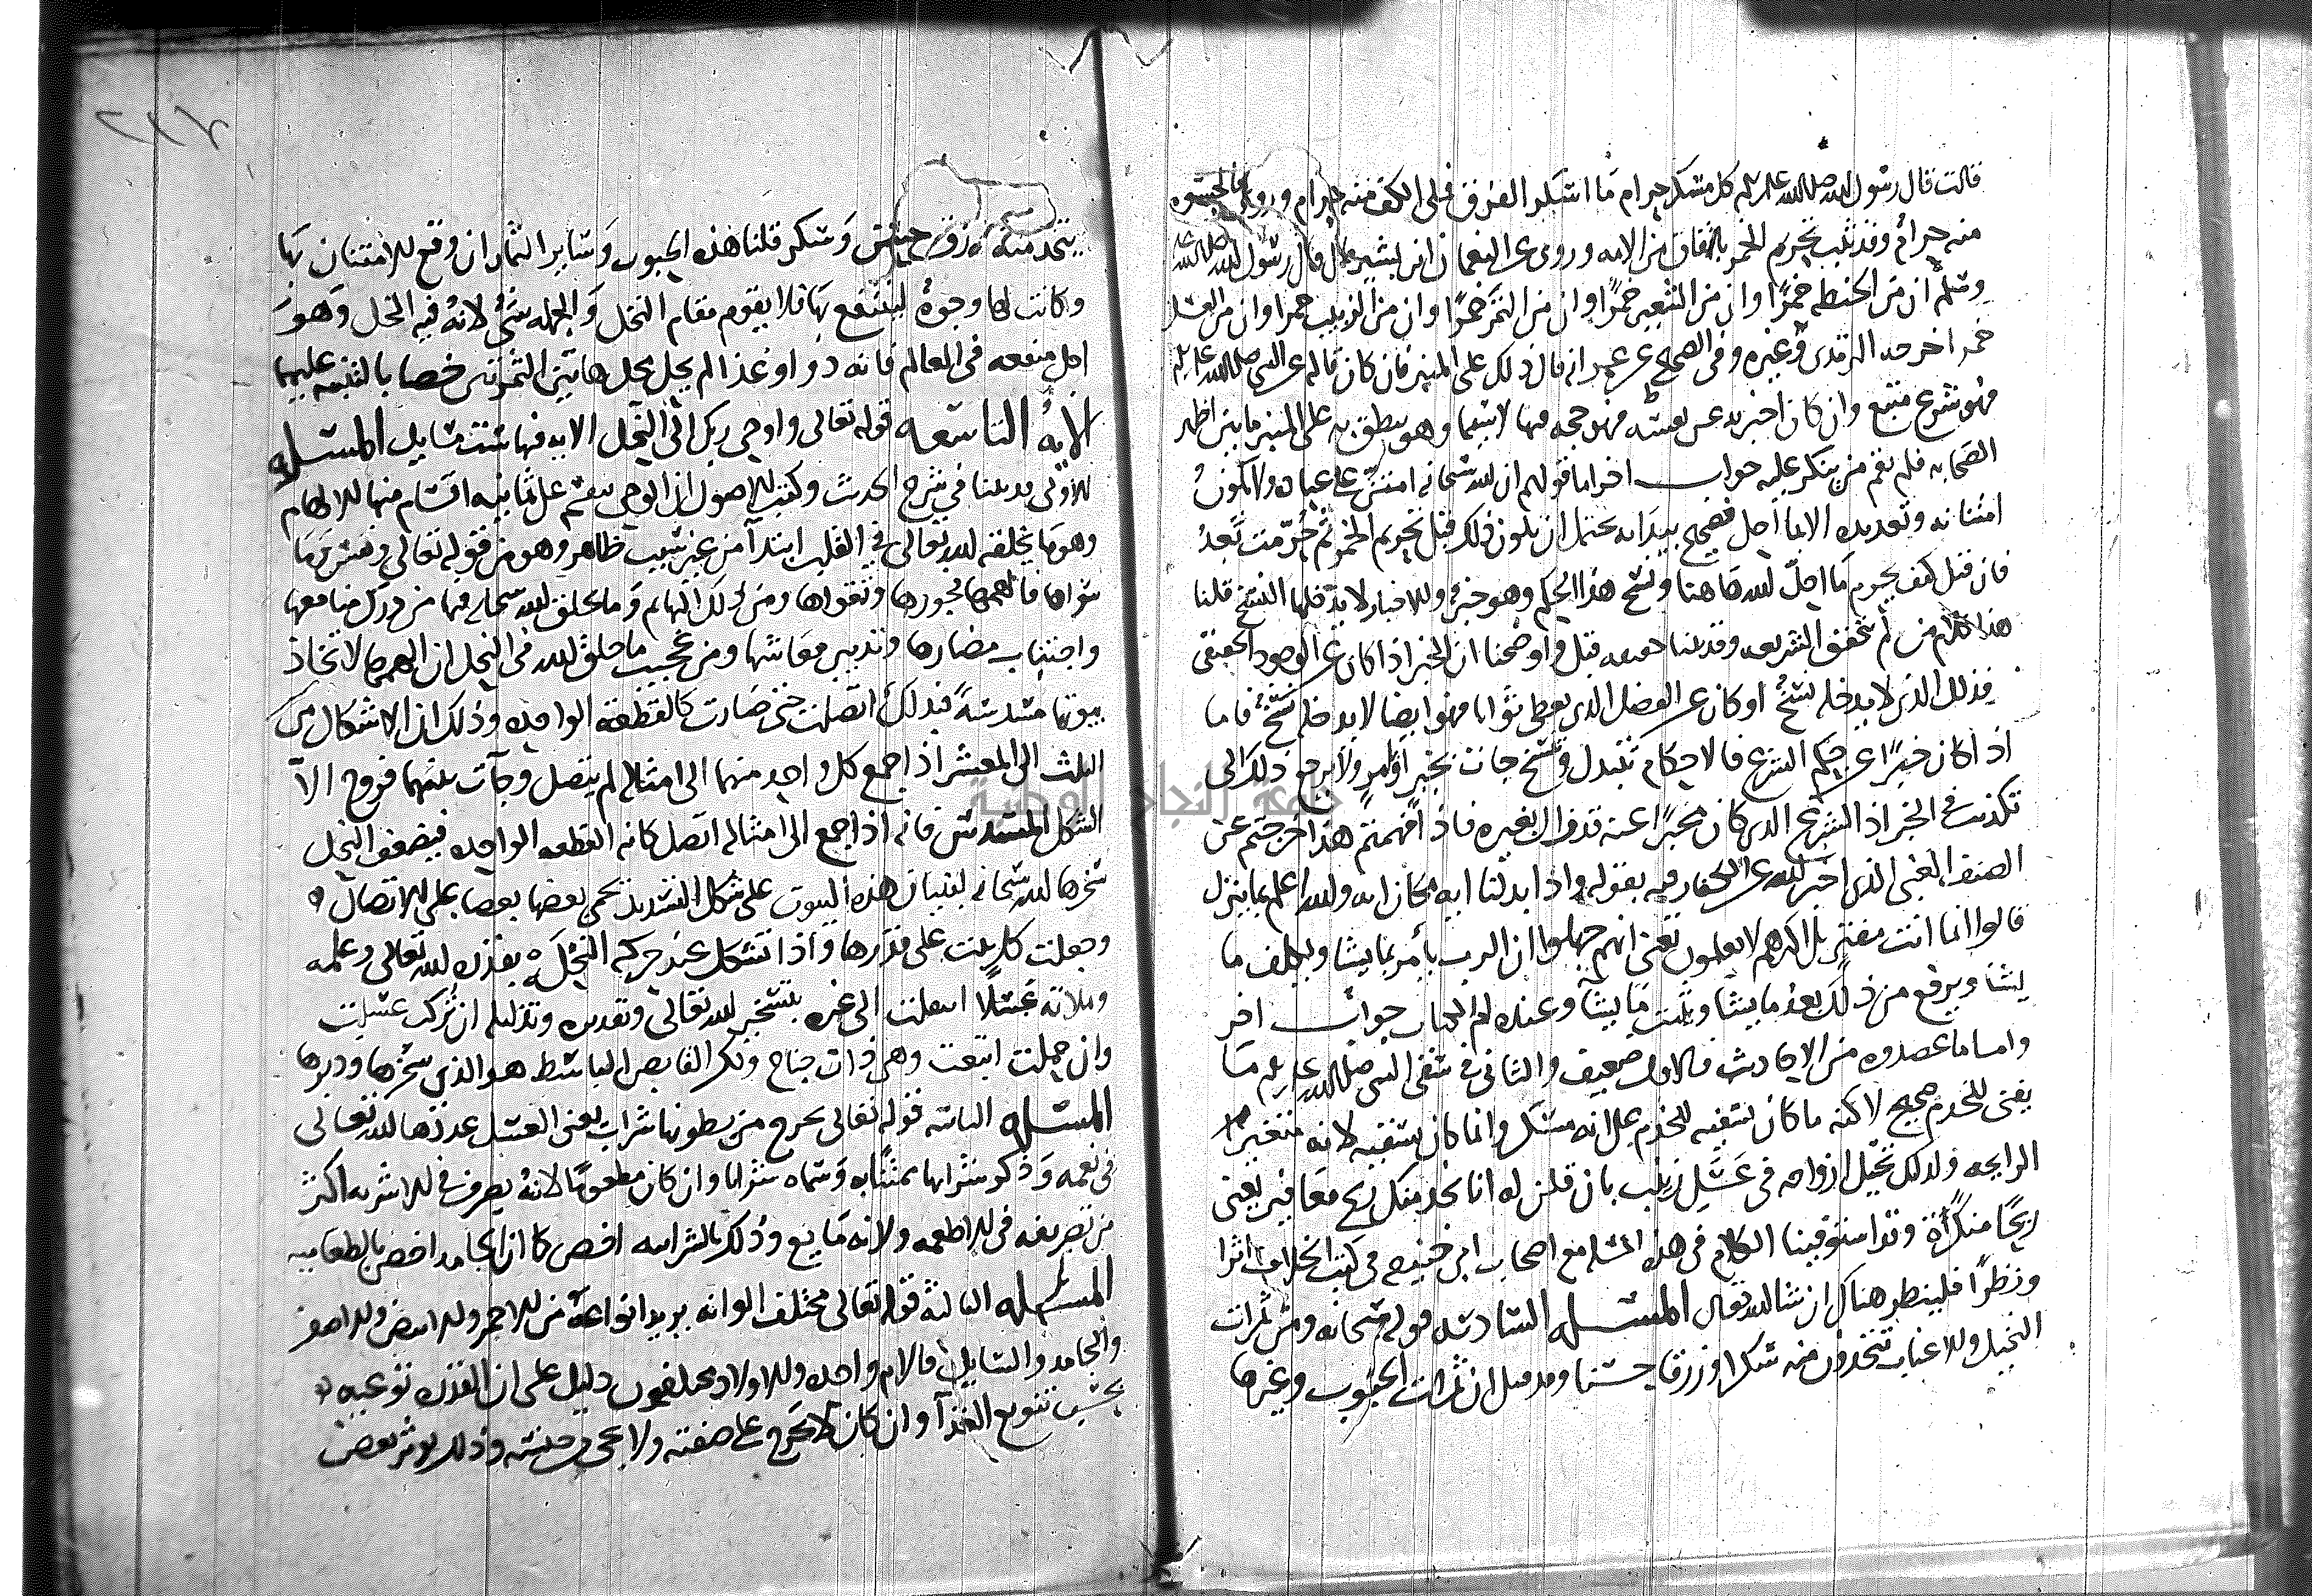 قالت قال رسول الله صلى الله عليه وسلم كل مسكر حرام ما اسكر الفرق فملى الكف منه حرام وروى فالحسوه
منه حرام وقد ثبت تحريم الخمر باتفاق من الامه وروى عن النعمان ابن بشير قال قال رسول الله صلى الله عليه
وسلم ان من الحنطه خمرًا وان من الشعير خمرًا وان من التمر خمرًا وان من الزبيب خمرا وان من العسل
خمر اخرجه الترمذى وغيره وفى الصحيح عن عمر انه قال ذلك على المنبر فان كان قاله عن النبى صلى الله عليه وسلم
فهو شرع متبع وان كان اخبر به عن نفسه فهو حجه فيها لاسيما وهو ينطق به على المنبر ما بين اظهر
الصحابه فلم يقم من ينكر عليه جواب اخر اما قولهم ان الله سبحانه امتن على عباده ولا يكون
امتنانه وتعديده الا بما احل فصحيح بيد انه يحتمل ان يكون ذلك قبل تحريم الخمر ثم حُرّمت بَعدُ
فان قيل كيف يحرم ما احلّ الله هاهنا وينسخ هذا الحكم وهو خبر والاخبار لا يدخلها النسخ قلنا
هذا كلام من لم يتحقق الشريعه وقد بينا حقيقته قبل واوضحنا ان الخبر اذا كان عن الوجود الحقيقى
فذلك الذى لا يدخله نسخٌ او كان عن الفضل المعطى ثوابا فهو ايضا لا يدخله نسخ فاما
اذا كان خبرًا عن حكم الشرع فالاحكام تتبدل وتنسخ جات بخبر او امر ولا يرجع ذلك الى
تكذيب فى الخبر اذ الشرع الذى كان مخبرًا عنه قد زال بغيره فاذا فهمتم هذا خرجتم عن
الصنف الغبى الذى اخبر الله عن الكفار فيه بقوله واذا بدلنا ايه مكان ايه والله اعلم بما ينزل
قالوا انما انت مفتر بل اكثرهم لا يعلمون يعنى انهم جهلوا ان الرب يأمر بما يشا ويكلف ما
يشا ويرفع من ذلك بعدله ما يشا ويثبت ما يشا وعنده ام الكتاب جواب اخر
واما ما عضدوه من الاحاديث فالاول ضعيف والثانى فى سقى النبى صلى الله عليه وسلم ما
بقى للخدم صحيح لاكنه ما كان يسقيه للخدم على انه مسكر وانما كان يسقيه لانه متغير
الرايحه ولذلك تحيّل ازواجه فى عَسَل زينب بان قلن له انا نجد منك ريح مغافير يعنى
ريحًا منكرًة وقد استوفينا الكلام فى هذه المسله مع اصحاب ابى حنيفه فى كتب الخلاف اثرا
ونظرًا فلينظر هناك ان شا الله تعالى المسله السادسه قوله سبحانه ومن ثمرات
النخيل والاعناب تتخذون منه سكرا ورزقا حسنا وقد قيل ان ثمرات الحبوب وغيرها
يتخذ منه رزق حسن وَسكر قلنا هذه الحبوب وَساير الثمار ان وقع الامتنان بها
وكانت لها وجوهٌ لينتفع بها فلا يقوم مقام النخل وَالجمله شىٌ لانهُ فيه الخل وَهوَ
اجل منفعه فى العالم فانه دوا وغذا لم يحل محل هاتين الثمرتين خصا بالتنبيه عليهما
الايه التاسعه قوله تعالى واوحى ربك الى النحل الايه فيها ست مسايل المسله
الاولى قد بينا فى شرح الحديث وكتب الاصول ان الوحى ينقسم على ثمانيه اقسام منها الالهام
وهو ما يخلقه الله تعالى فى القلب ابتدآ من غير سبب ظاهر وهو من قوله تعالى ونفس وَما
سواها فالهمها فجورها وتقواها ومن ذلك البهايم وَما يخلق الله سبحانه فيها من درك منافعها
واجتناب مضارها وتدبير معاشها ومن عجيب ما خلق الله فى النحل ان الهمها لاتخاذ
بيوتها مسدسةً فبذلك اتصلت حتى صَارت كالقطعه الواحده وذلك ان الاشكال من
المثلث الى المعشر اذا جمع كل واحد منهما الى امثاله لم يتصل وجآت بينهما فروج الا
الشكل المسدس فانه اذا جمع الى امثاله اتصل كانه القطعه الواحده فيضعف النحل
سخرها الله سبحانه لبنيان هذه البيوت على شكل التسديد تحمى بعضها بعضا على الاتصال
وجعلت كل بيت على قدرها واذا تشكل عند حركه النحلَه بقدره الله تعالى وعلمه
وملاته عَسلًا انتقلت الى غيره بتسخير الله تعالى وتقديره وتذليله ان تُركت عسلت
وان حملت اتبعت وهى ذات جناح ولكن القابض الباسط هو الذى سخرها ودبرها
المسله الثانيه قوله تعالى يخرج من بطونها شراب يعنى العسل عددها الله تعالى
فى نعمه وَذكر شرابها ممتنًا به وَسماه شرابا وان كان مطعومًا لانهُ يصرف فى الاشربه اكثر
من تصريفه فى الاطعمه ولانه مَايع وذلك بالشرابيه اخص كما ان الجامد اخص بالطعاميه
المسله الثالثه قوله تعالى مختلف الوانه يريد انواعهُ من الاحمر والابيض والاصفر
والجامد والسايل فالام واحده والاولاد مختلفون دليل على ان القدره نوعته
بحسب تنويع الغذآ وان كان لا يخرج على صفته ولا يجى فى جنسه وذلك يوثر بعض